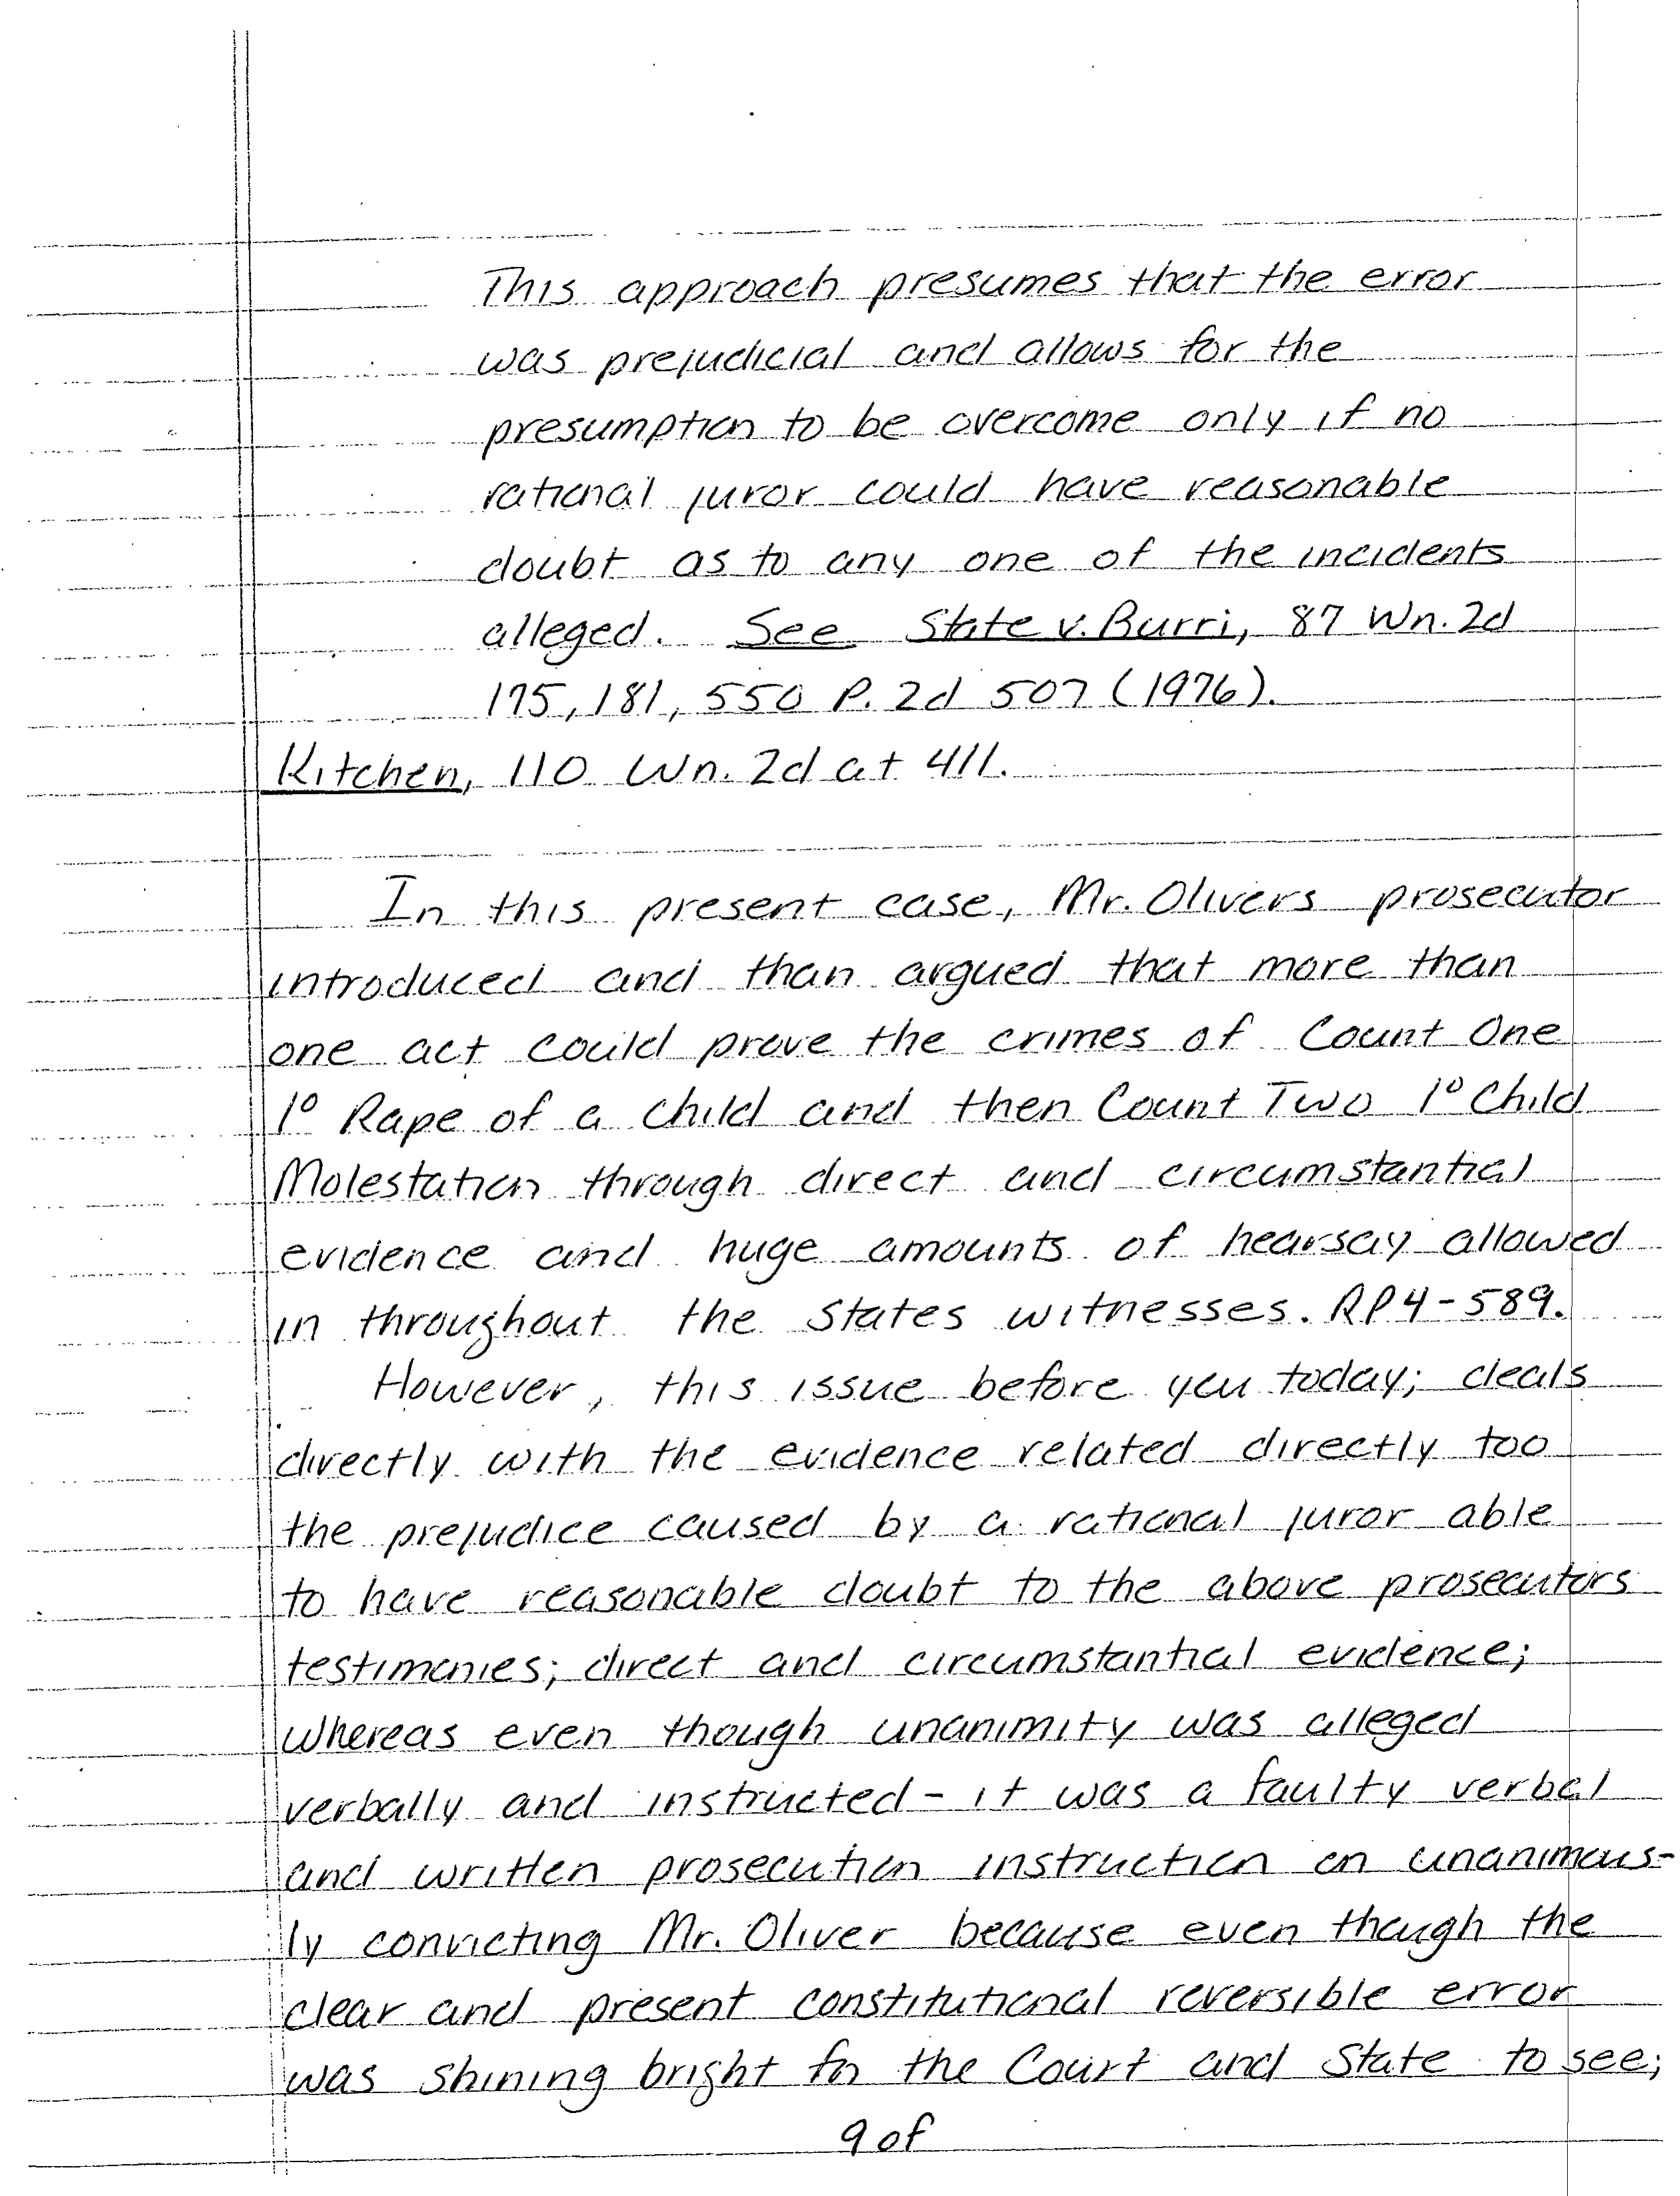 This approach presumes that the error
was prejudicial and allows for the
presumption to be overcome only if no
rational juror could have reasonable
doubt as to any one of the incidents
alleged. See State v. Burri, 87 Wn. 2d
175, 181, 550 P. 2d 507 (1976).
Kitchen, 110 Wn. 2d at 411.
In this present case, Mr. Olivers prosecutor
introduced and than argued that more than
one act could prove the crimes of Count One
1° Rape of a Child and then Count Two 1° Child
Molestation through direct and circumstantial
evidence and huge amounts of hearsay allowed
in throughout the States witnesses. RP4-589.
However, this issue before you today; deals
directly with the evidence related directly too
the prejudice caused by a rational juror able
to have reasonable doubt to the above prosecutors
testimonies; direct and circumstantial evidence;
whereas even though unanimity was alleged
verbally and instructed - it was a faulty verbal
and written prosecution instruction on unanimous-
ly convicting Mr. Oliver because even though the
clear and present constitutional reversible error
was shining bright for the Court and State to see;
9 of